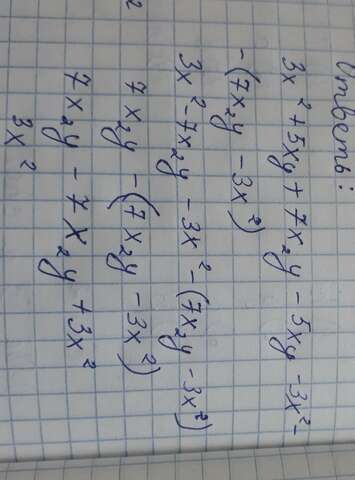 Ответь:
3x² + 5xy + 7x₂y - 5xy - 3x² -
- (7x₂y - 3x²)
3x² - 7x₂y - 3x² - (7x₂y - 3x²)
7x₂y - (7x₂y - 3x²)
7x₂y - 7x₂y + 3x²
3x²